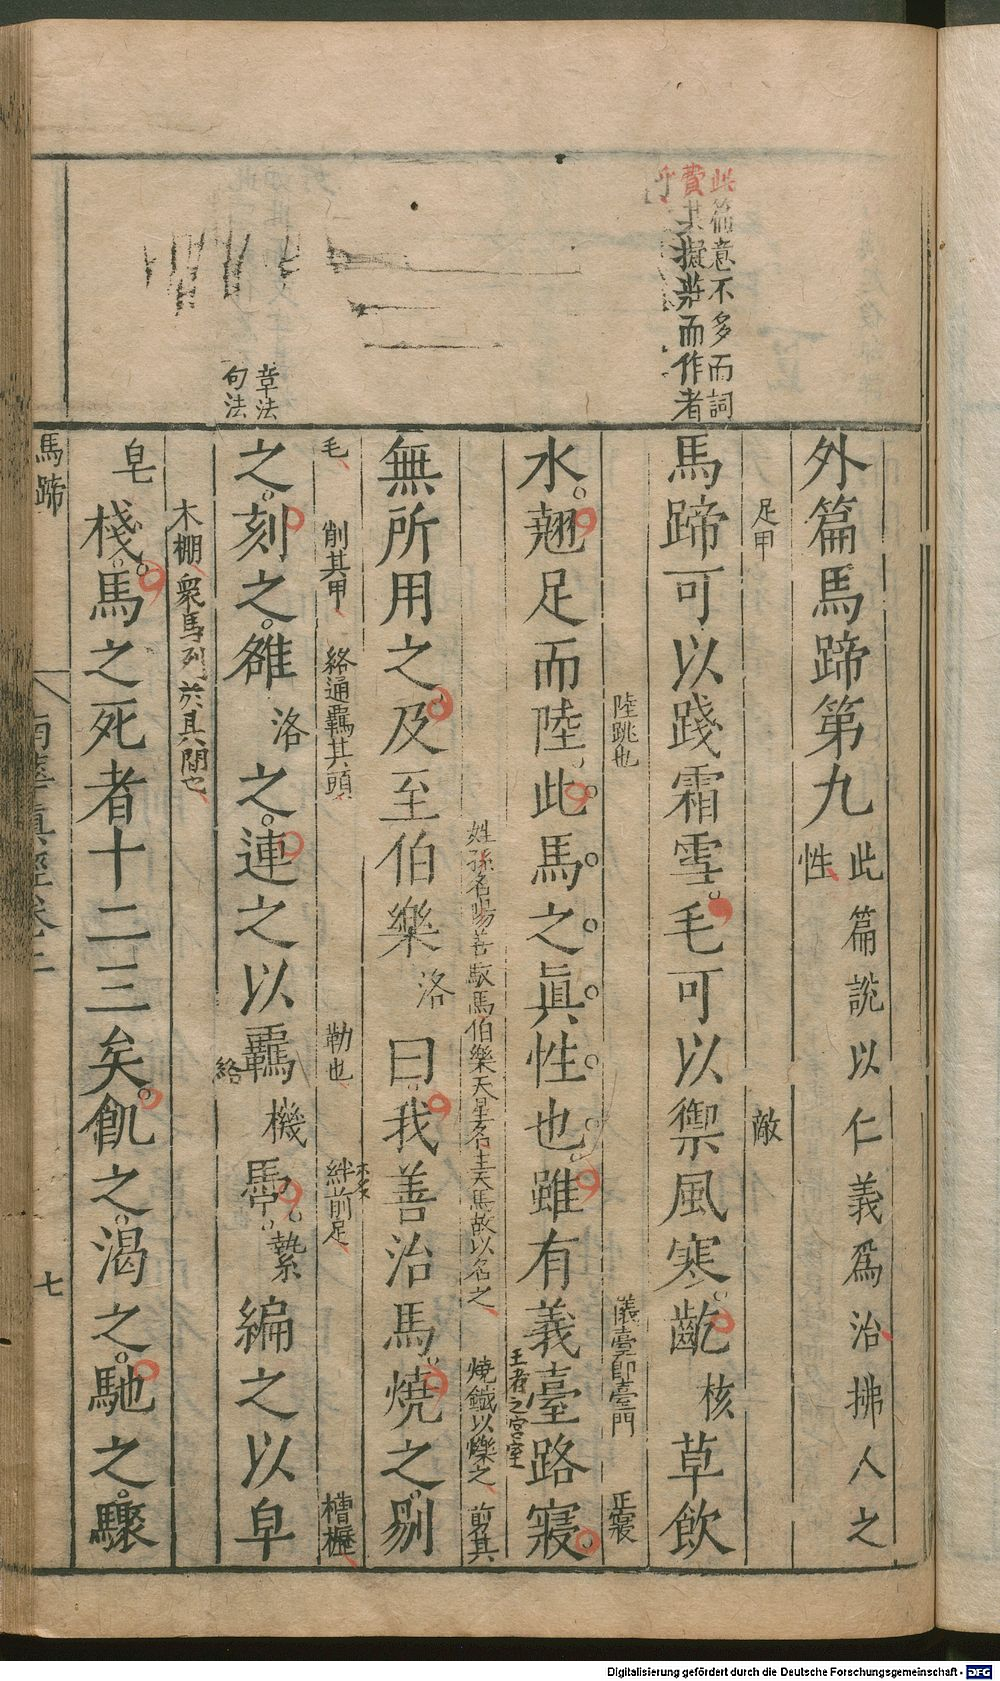 此篇意不多而詞
費其擬莊而作者
乎
章法
句法
外篇馬蹄第九 此篇說以仁義爲治拂人之
性
足甲 敵
馬蹄可以踐霜雪毛可以禦風寒齕 核 草飲
陸跳也 儀臺即臺門 正寢
水翹足而陸此馬之眞性也雖有義臺路寢
王者之宮室
姓孫名陽善馭馬伯樂天星名主天馬故以名之 燒鐵以爍之 剪其
無所用之及至伯樂 洛 曰我善治馬燒之剔
毛 削其甲 絡通羈其頭 勒也 絆前足 槽櫪
之刻之雒 洛 之連之以羈 機 馽 縶 編之以皁
絡
木棚衆馬列於其間也
皂 棧馬之死者十二三矣飢之渴之馳之驟
馬蹄 南華眞經卷二 七
Digitalisierung gefördert durch die Deutsche Forschungsgemeinschaft - DFG